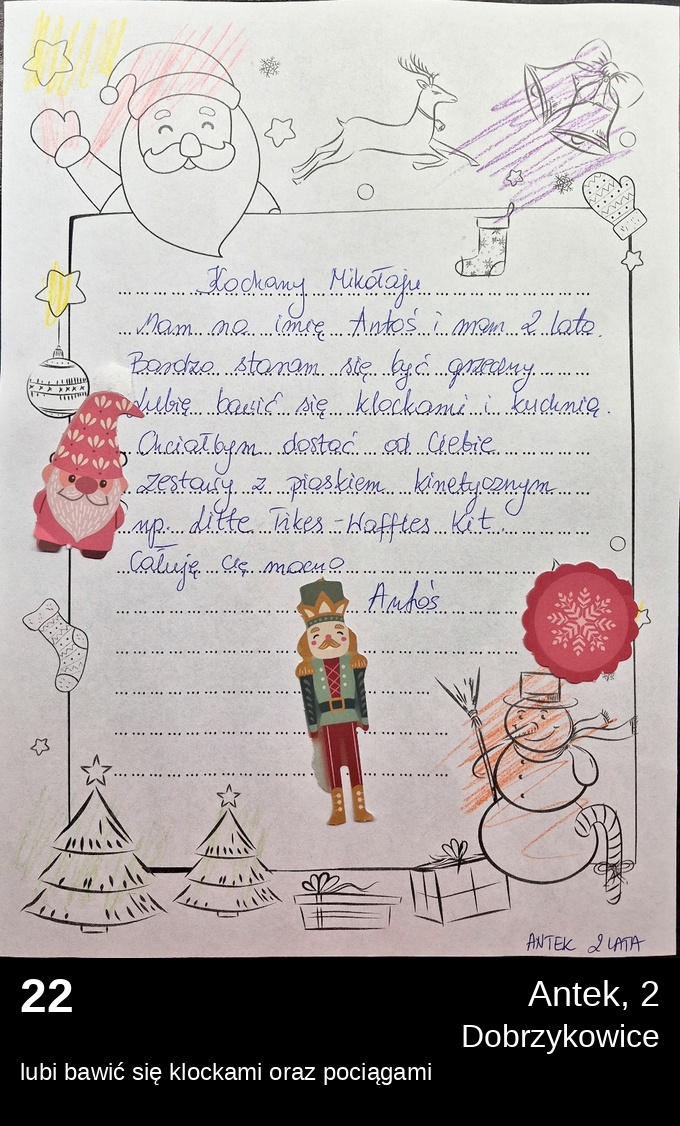 Kochany Mikołaju
Mam na imię Antoś i mam 2 lata.
Bardzo staram się być grzeczny
Lubię bawić się klockami i kuchnią.
Chciałbym dostać od Ciebie
zestawy z piaskiem kinetycznym
np. Litte Tikes - Waffles Kit.
Całuję Cię mocno
Antoś
ANTEK 2 LATA
22
Antek, 2
Dobrzykowice
lubi bawić się klockami oraz pociągami